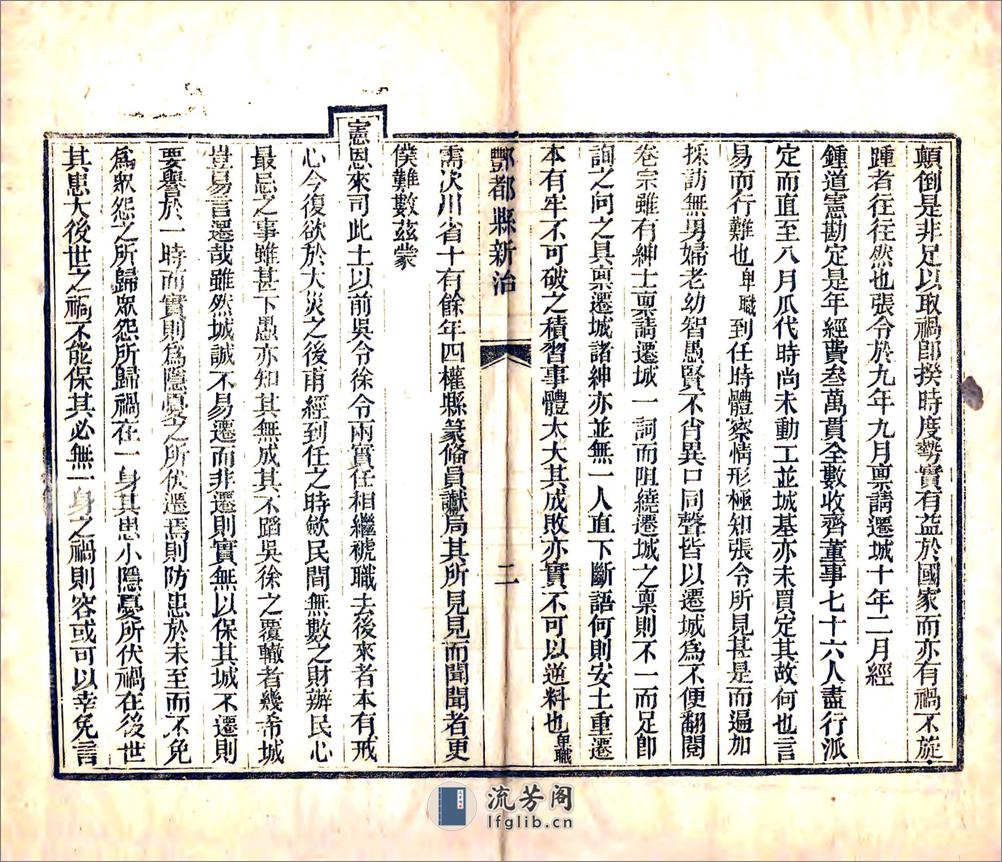 顛倒是非足以取禍卽揆時度勢實有益於國家而亦有禍不旋
踵者往往然也張令於九年九月禀請遷城十年二月經
鍾道憲勘定是年經費叁萬貫全數收齊董事七十六人盡行派
定而直至八月瓜代時尚未動工並城基亦未買定其故何也言
易而行難也卑職到任時體察情形極知張令所見甚是而遍加
採訪無男婦老幼智愚賢不肖異口同聲皆以遷城爲不便翻閱
卷宗雖有紳士禀請遷城一詞而阻繞遷城之禀則不一而足卽
詢之向之具禀遷城諸紳亦並無一人直下斷語何則安土重遷
本有牢不可破之積習事體太大其成敗亦實不可以逆料也卑職
酆都縣新治
二
需次川省十有餘年四權縣篆脩員讞局其所見見而聞聞者更
僕難數茲蒙
憲恩來司此土以前吳令徐令兩實任相繼褫職去後來者本有戒
心今復欲於大災之後甫經到任之時歛民間無數之財辦民心
最忌之事雖甚下愚亦知其無成其不蹈吳徐之覆轍者幾希城
豈易言遷哉雖然城誠不易遷而非遷則實無以保其城不遷則
要譽於一時而實則爲隱憂之所伏遷焉則防患於未至而不免
爲眾怨之所歸眾怨所歸禍在一身其患小隱憂所伏禍在後世
其患大後世之禍不能保其必無一身之禍則容或可以幸免言
流芳阁
lfglib.cn